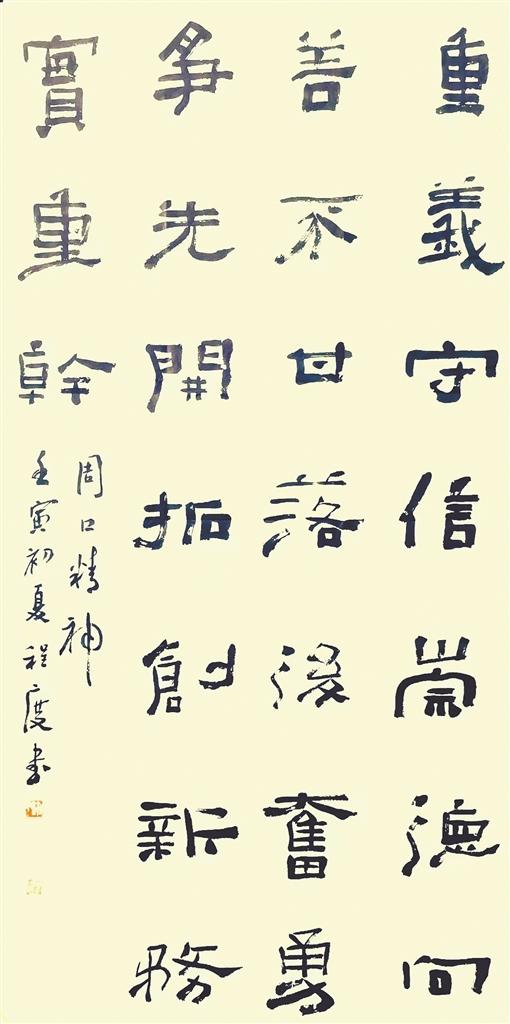 重義守信崇德向
善不甘落後奮勇
爭先開拓創新務
實重幹
周口精神
壬寅初夏程度書